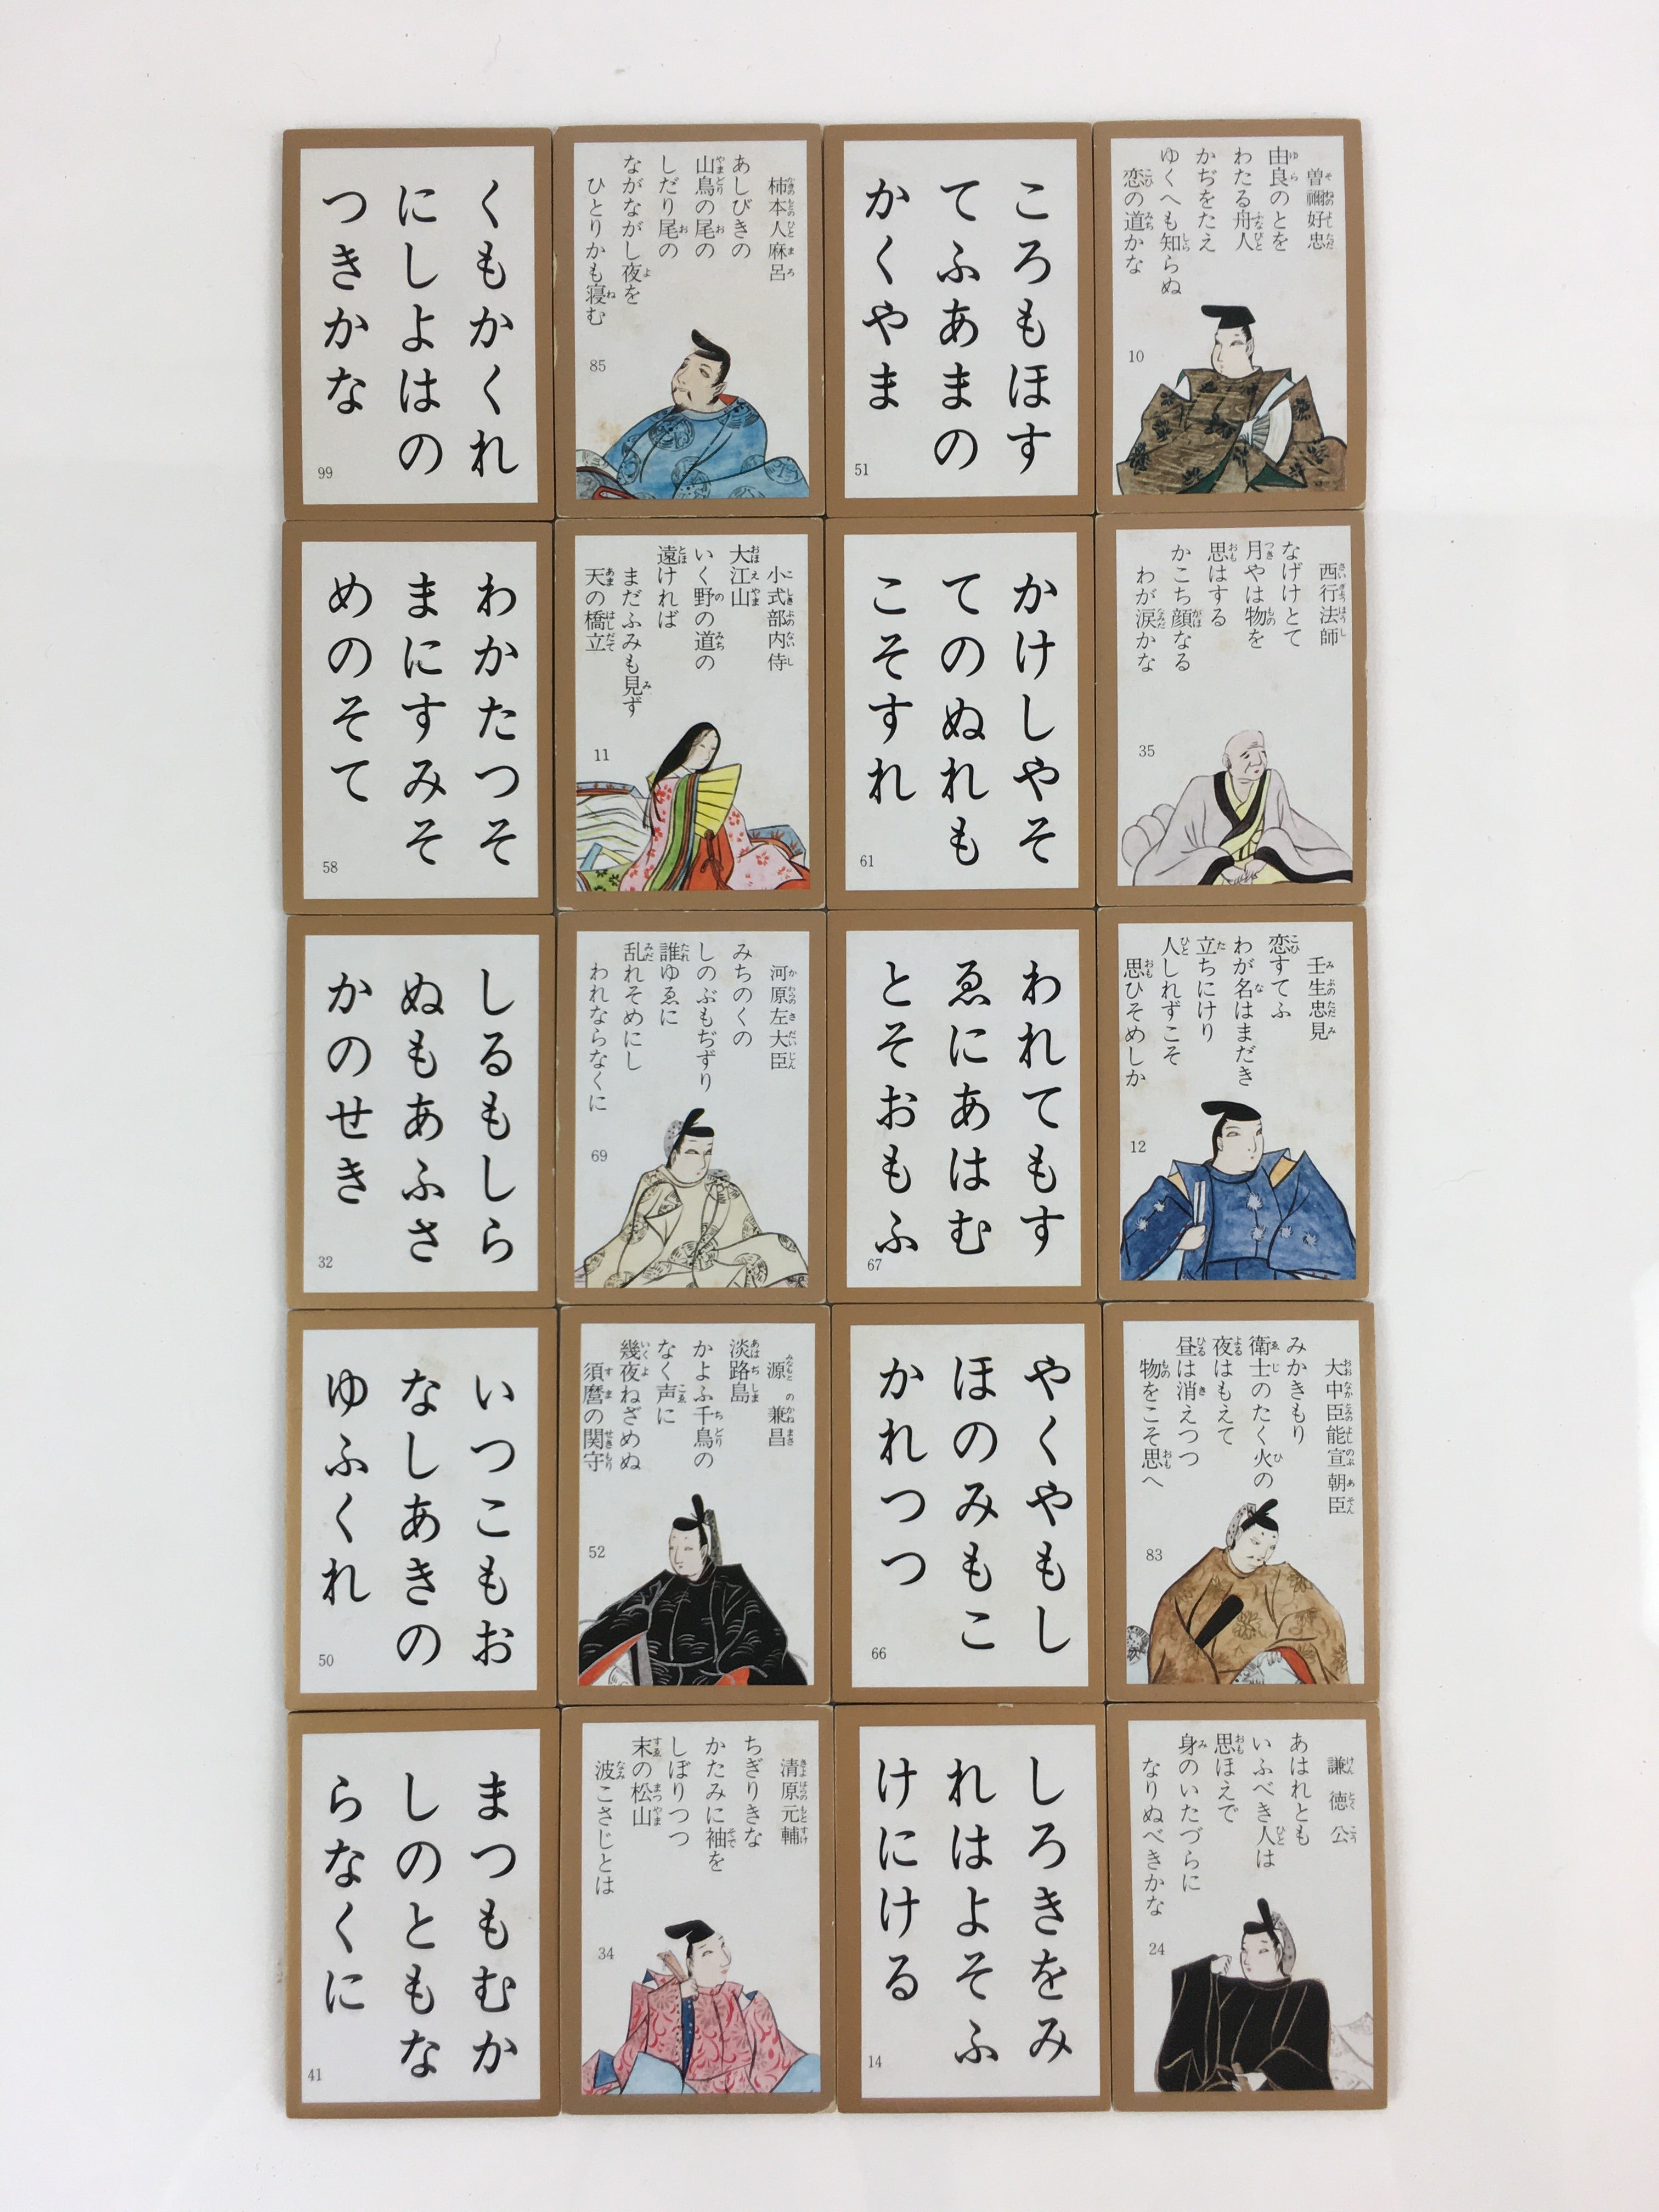 くもかくれ
にしよはの
つきかな
99
柿本人麻呂
あしびきの
山鳥の尾の
しだり尾の
ながながし夜を
ひとりかも寝む
85
ころもほす
てふあまの
かくやま
51
曽禰好忠
由良のとを
わたる舟人
かぢをたえ
ゆくへも知らぬ
恋の道かな
10
わかたつそ
まにすみそ
めのそて
58
小式部内侍
大江山
いく野の道の
遠ければ
まだふみも見ず
天の橋立
11
かけしやそ
てのぬれも
こそすれ
61
西行法師
なげけとて
月やは物を
思はする
かこち顔なる
わが涙かな
35
しるもしら
ぬもあふさ
かのせき
32
河原左大臣
みちのくの
しのぶもぢずり
誰ゆゑに
乱れそめにし
われならなくに
69
われてもす
ゑにあはむ
とそおもふ
67
壬生忠見
恋すてふ
わが名はまだき
立ちにけり
人しれずこそ
思ひそめしか
12
いつこもお
なしあきの
ゆふくれ
50
源兼昌
淡路島
かよふ千鳥の
なく声に
幾夜ねざめぬ
須麿の関守
52
やくやもし
ほのみもこ
かれつつ
66
大中臣能宣朝臣
みかきもり
衛士のたく火の
夜はもえて
昼は消えつつ
物をこそ思へ
83
まつもむか
しのともな
らなくに
41
清原元輔
ちぎりきな
かたみに袖を
しぼりつつ
末の松山
波こさじとは
34
しろきをみ
れはよそふ
けにける
14
謙徳公
あはれとも
いふべき人は
思ほえで
身のいたづらに
なりぬべきかな
24